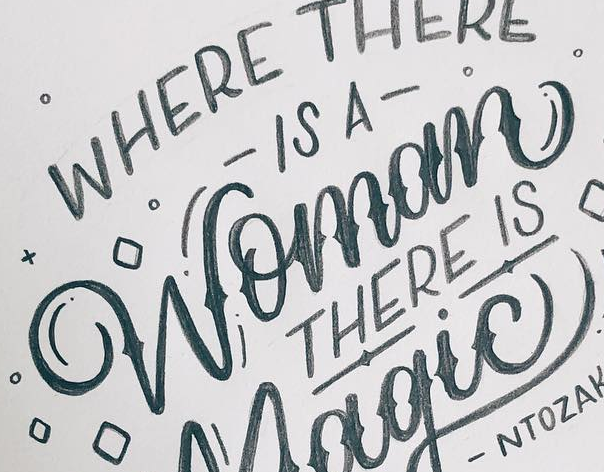 WHERE THERE
- IS A -
Woman
THERE IS
Magic
- NTOZAK